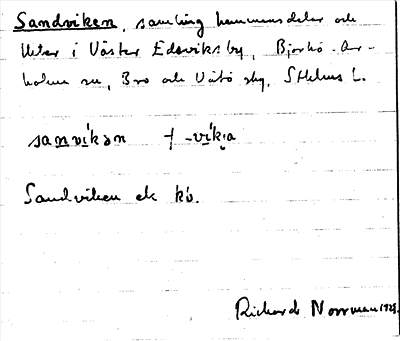 Sandviken, samling hemmansdelar och
lktar i Väster Edsviks by, Björkö-Ar-
holma sn, Bro och Vätö skg, Sthlms l.
sanvikan + -vika
Sandviken ek kö.
Richard Norrman 1928.